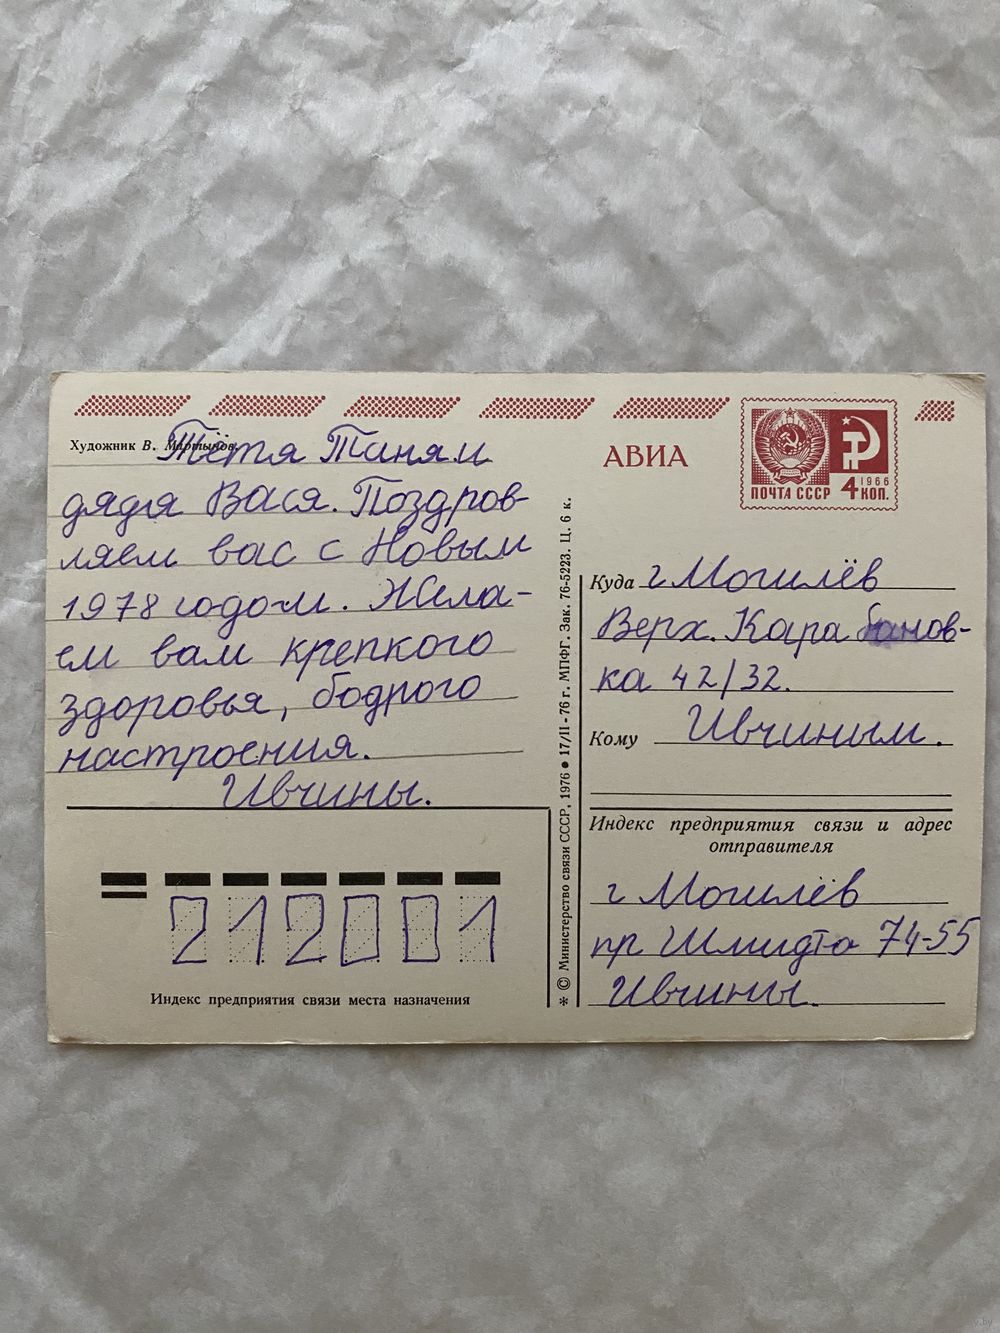 Художник В. Мартынов
Тётя Таня и
дядя Вася. Поздров-
ляем вас с Новым
1978 годом. Жела-
ем вам крепкого
здоровья, бодрого
настроения.
Ивчины.
212001
Индекс предприятия связи места назначения
* © Министерство связи СССР, 1976 • 17/II-76 г. МПФГ. Зак. 76-5223. Ц. 6 к.
АВИА
ПОЧТА СССР
1966
4 КОП.
Куда г Могилёв
Верх. Карабановка-
ка 42/32.
Кому Ивчиным.
Индекс предприятия связи и адрес
отправителя
г Могилёв
пр Шмидта 74-55
Ивчины.